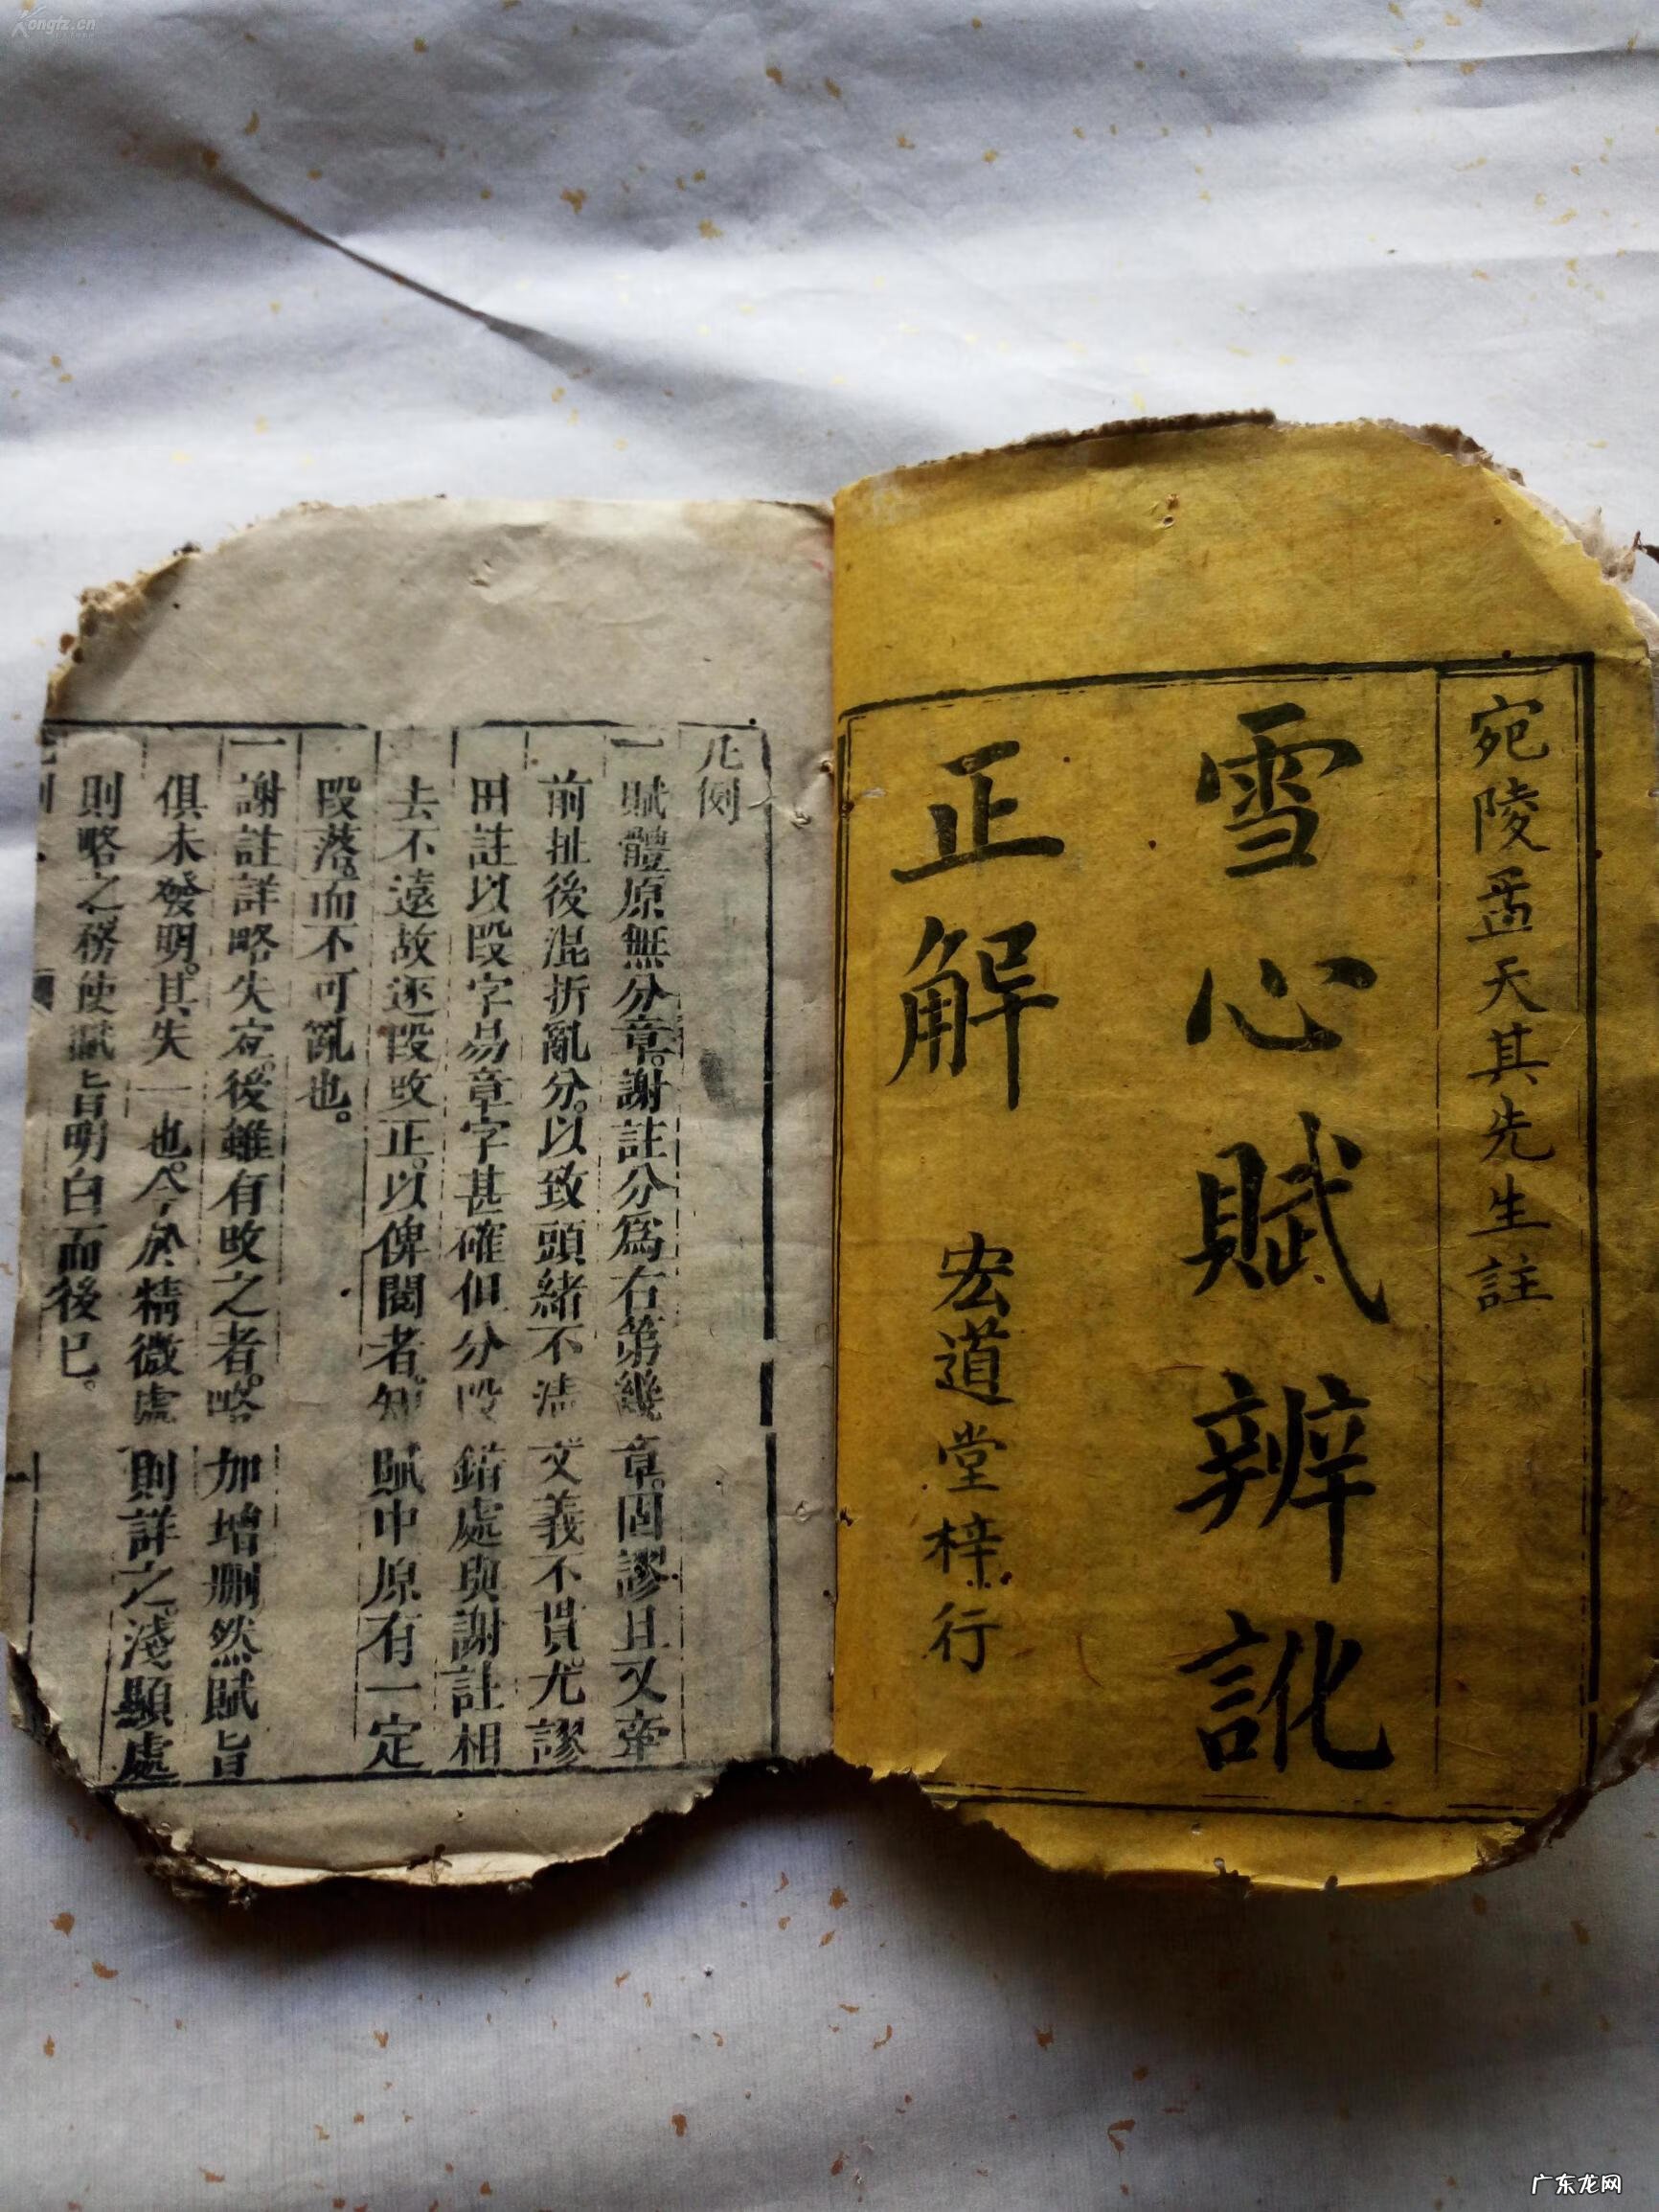 宛陵孟天其先生註
雪心賦辨訛
正解
宏道堂梓行
凡例
一賦體原無分章。謝註分為右第幾章。固謬且又牽
前扯後混折亂分。以致頭緒不清文義不貫。尤謬
田註以段字易章字甚確但分段錯處與謝註相
去不遠故逐段改正。以俾閱者。知賦中原有一定
段落。而不可亂也。
一謝註詳略失宜。後雖有改之者。略加增刪然賦旨
俱未發明。其失一也。今於精微處則詳之。淺顯處
則略之務使賦旨明白而後已。
Kongfz.cn
广东龙网